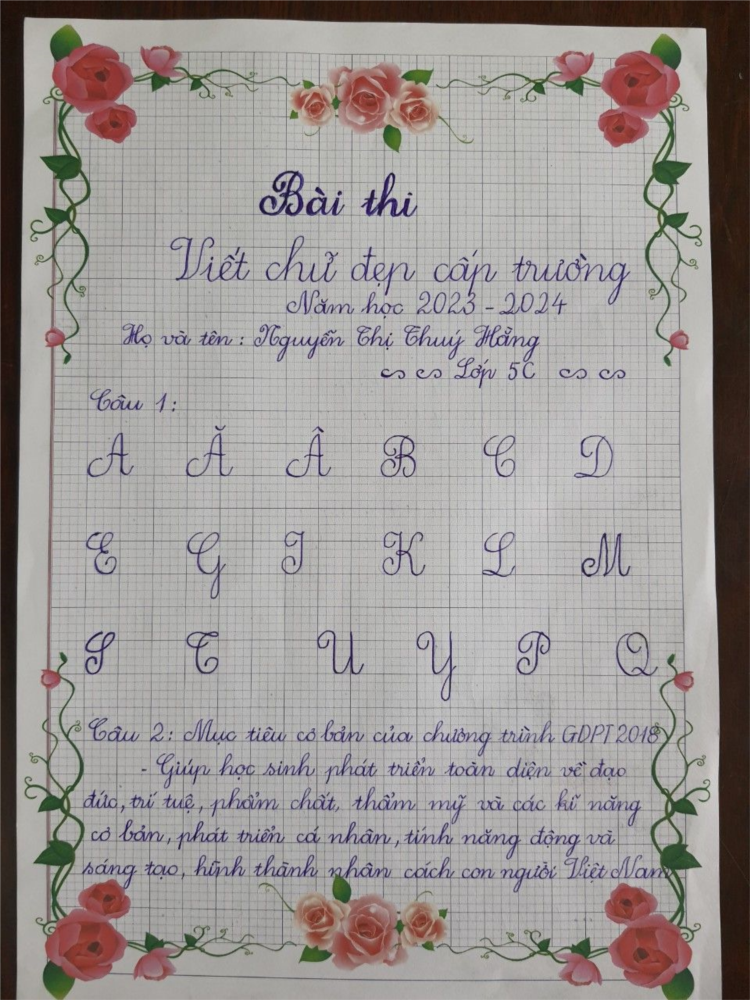 Bài thi
Viết chữ đẹp cấp trường
Năm học 2023 - 2024
Họ và tên : Nguyễn Thị Thuý Hằng
Lớp 5C
Câu 1:
A Ă Â B C D
E G I K L M
S T U Y P Q
Câu 2: Mục tiêu cơ bản của chương trình GDPT 2018
- Giúp học sinh phát triển toàn diện về đạo
đức, trí tuệ, phẩm chất, thẩm mỹ và các kĩ năng
cơ bản, phát triển cá nhân, tính năng động và
sáng tạo, hình thành nhân cách con người Việt Nam